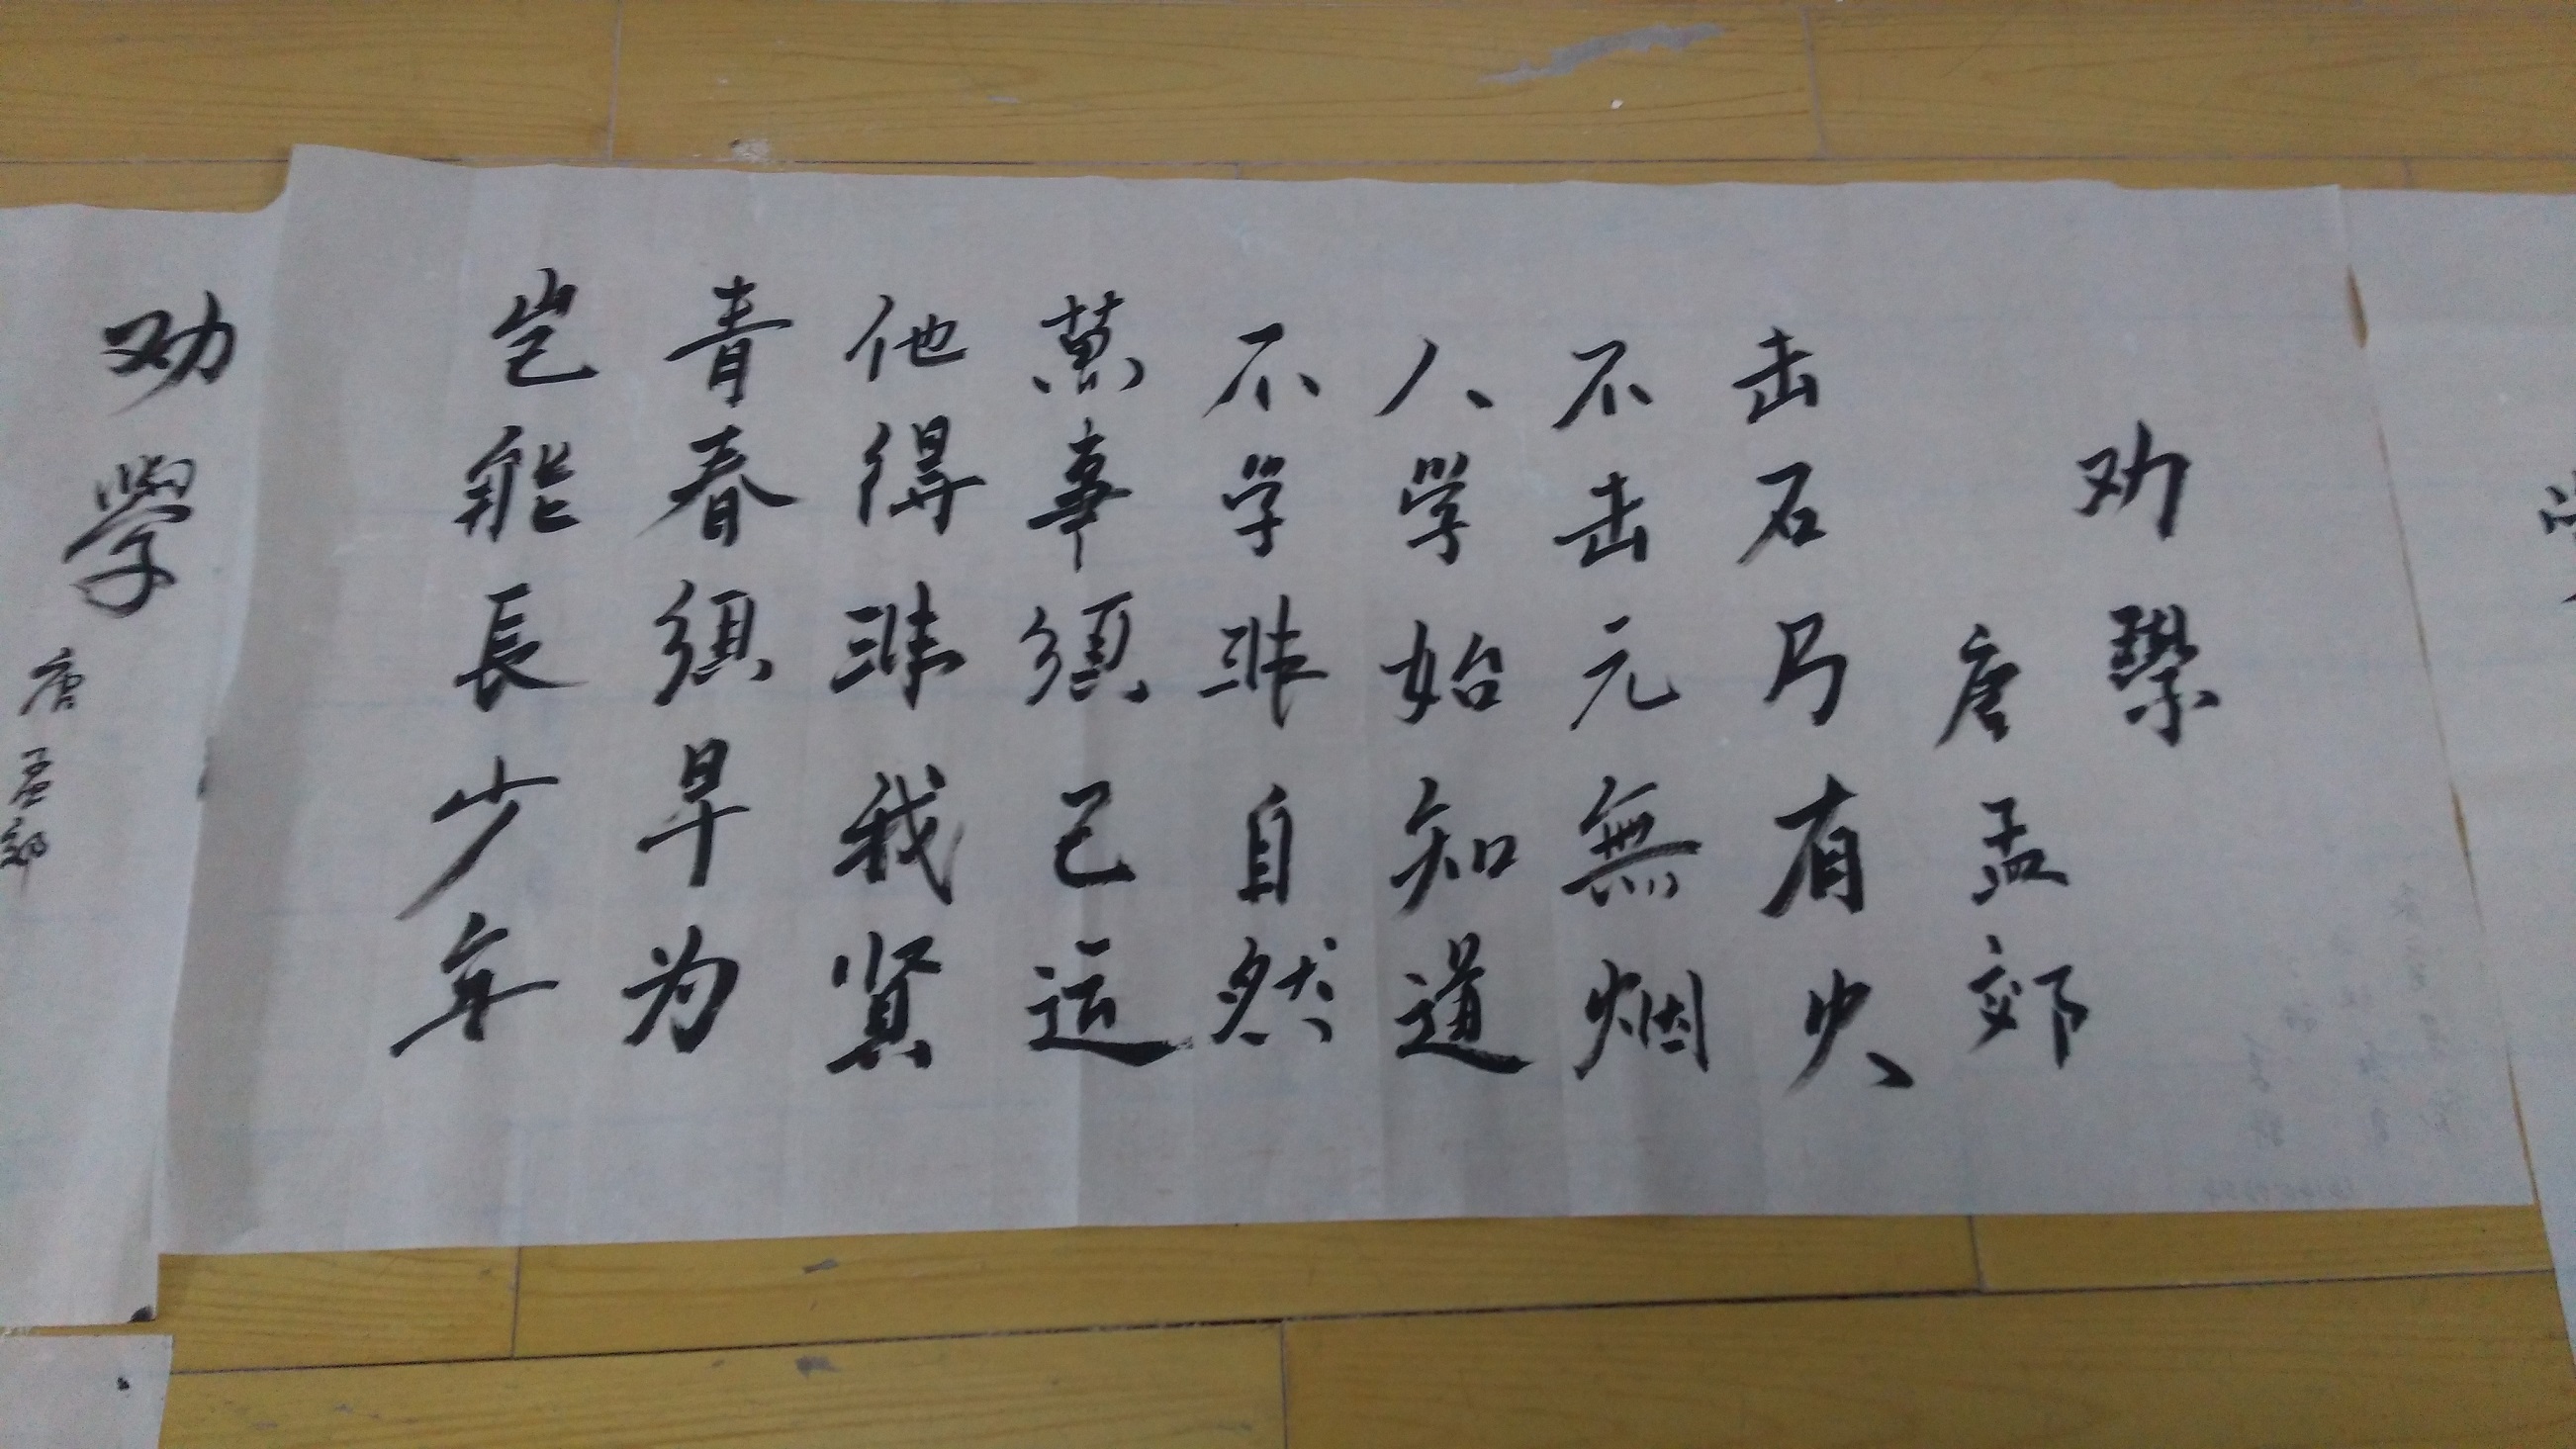 劝學
唐孟郊
击石乃有火
不击元無烟
人学始知道
不学非自然
萬事須己运
他得非我賢
青春須早为
岂能長少年
劝學
唐孟郊